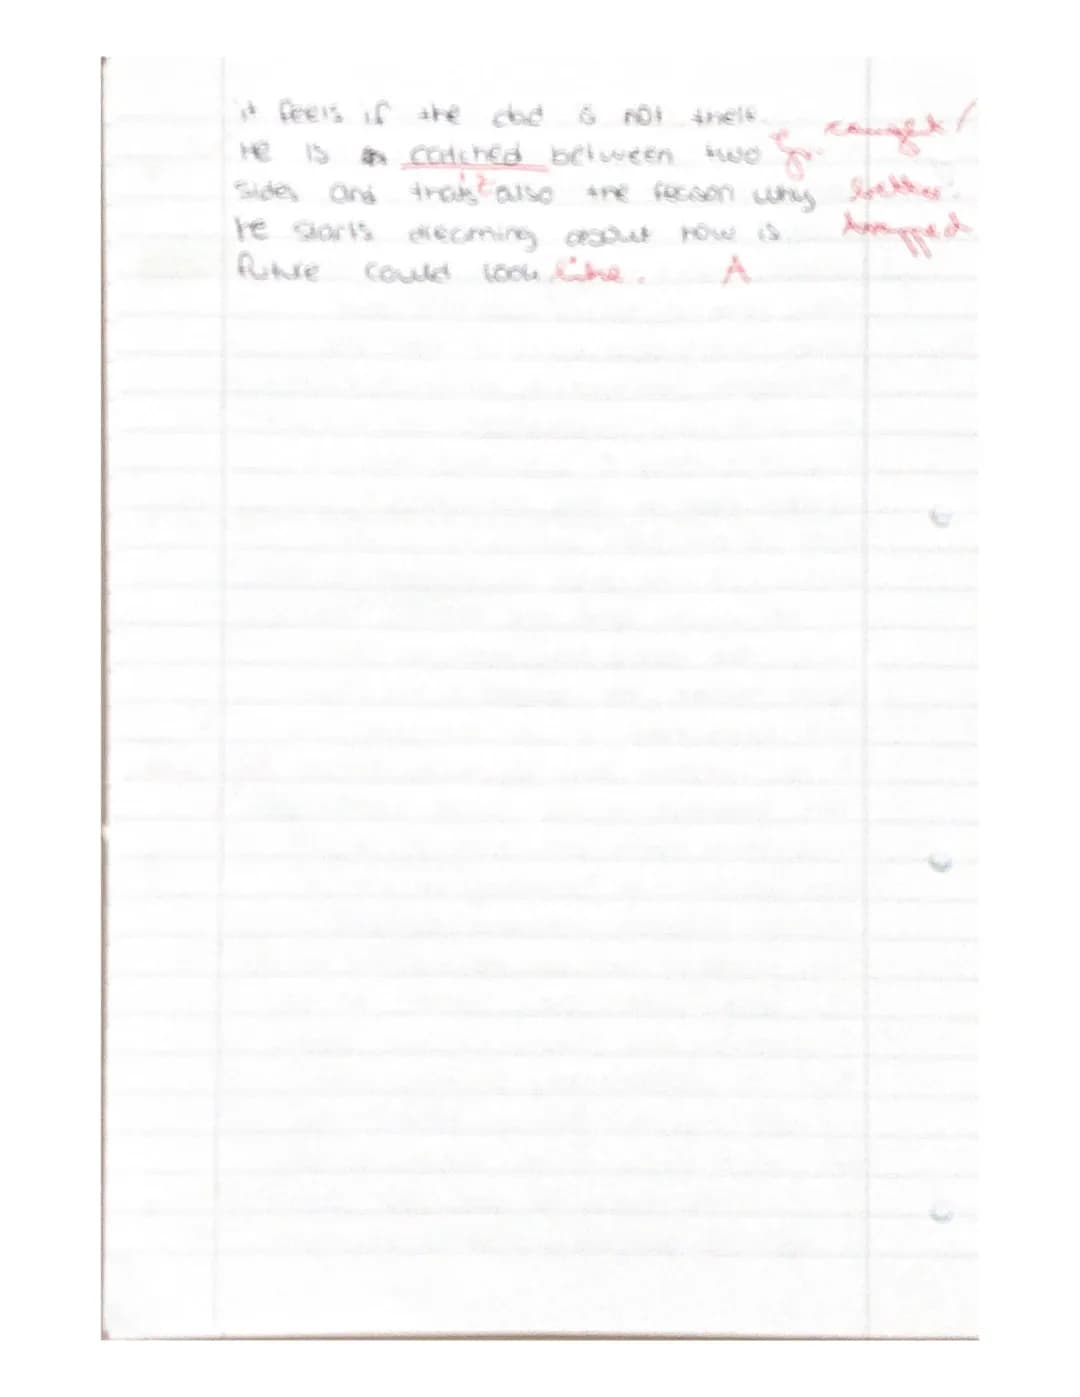 it feels if the dad is not there.
He is catched between two gr. caught /
sides and that's also the reason why better:
he starts dreaming about how is trapped
future could look like. A